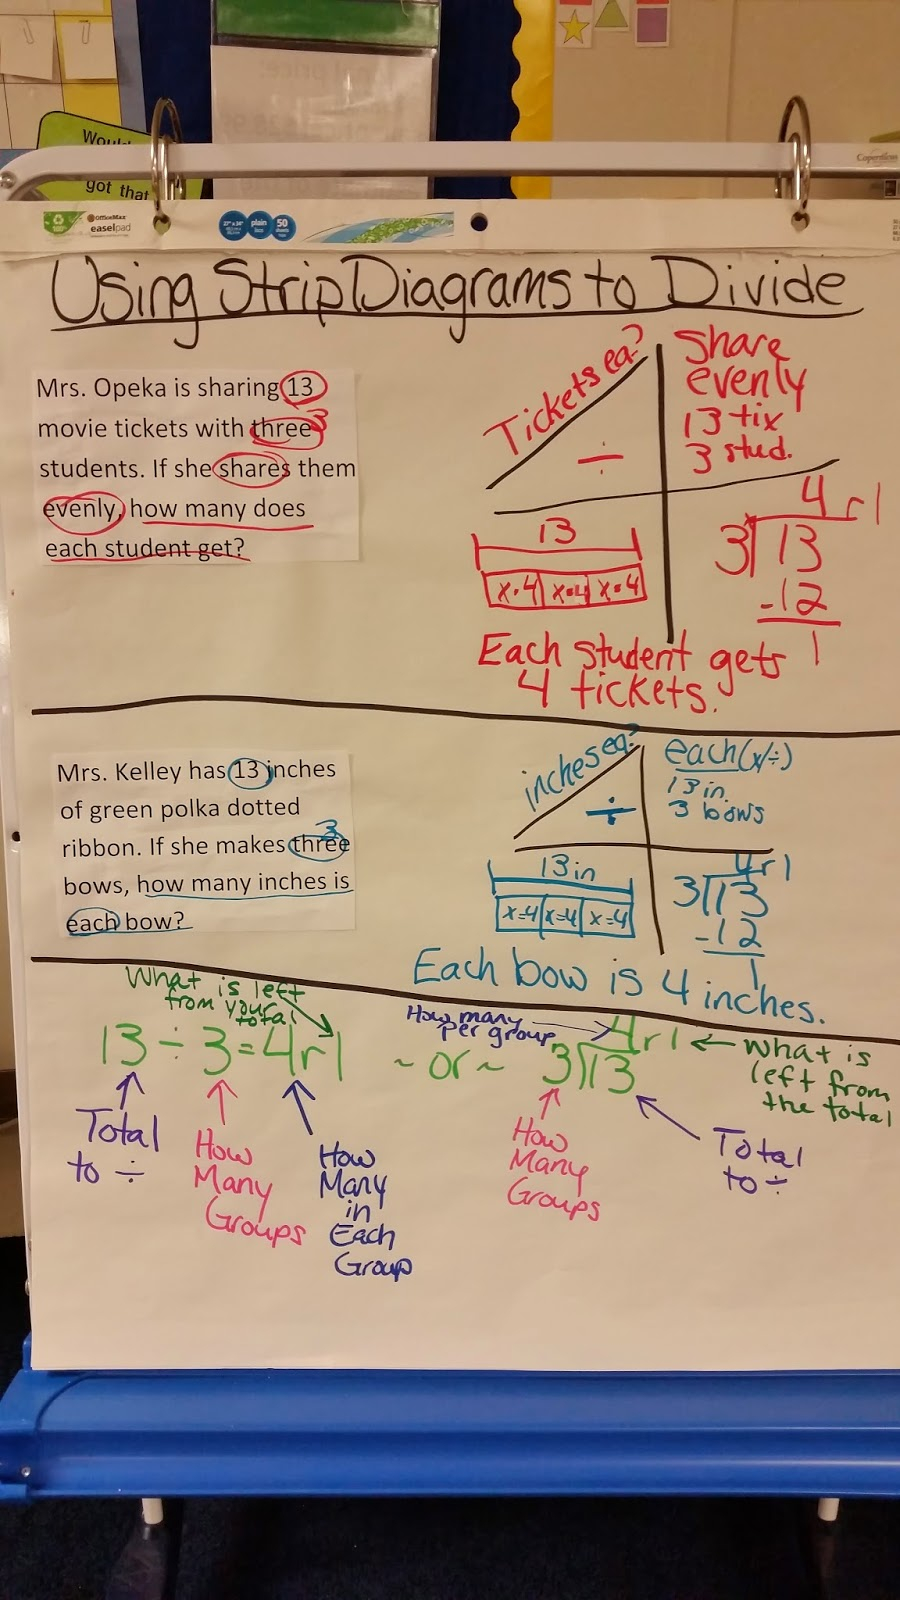 Woul
got that
OfficeMax
easelpad
27" x 34"
plain
50
Using Strip Diagrams to Divide
Mrs. Opeka is sharing 13
movie tickets with three 3
students. If she shares them
evenly, how many does
each student get?
Tickets ea?
÷
Share
evenly
13 tix
3 stud.
13
x=4 x=4 x=4
4 r1
3 13
-12
1
Each student gets
4 tickets.
Mrs. Kelley has 13 inches
of green polka dotted
ribbon. If she makes three 3
bows, how many inches is
each bow?
inches ea?
÷
each (x/÷)
13 in.
3 bows
13 in
x=4 x=4 x=4
4 r1
3 13
-12
1
Each bow is 4 inches.
What is left
from your
total
13 ÷ 3 = 4 r 1
Total
to ÷
How
Many
Groups
How
Many
in
Each
Group
~or~
How many
per group
4 r 1
3 13
What is
left from
the total
How
Many
Groups
Total
to ÷